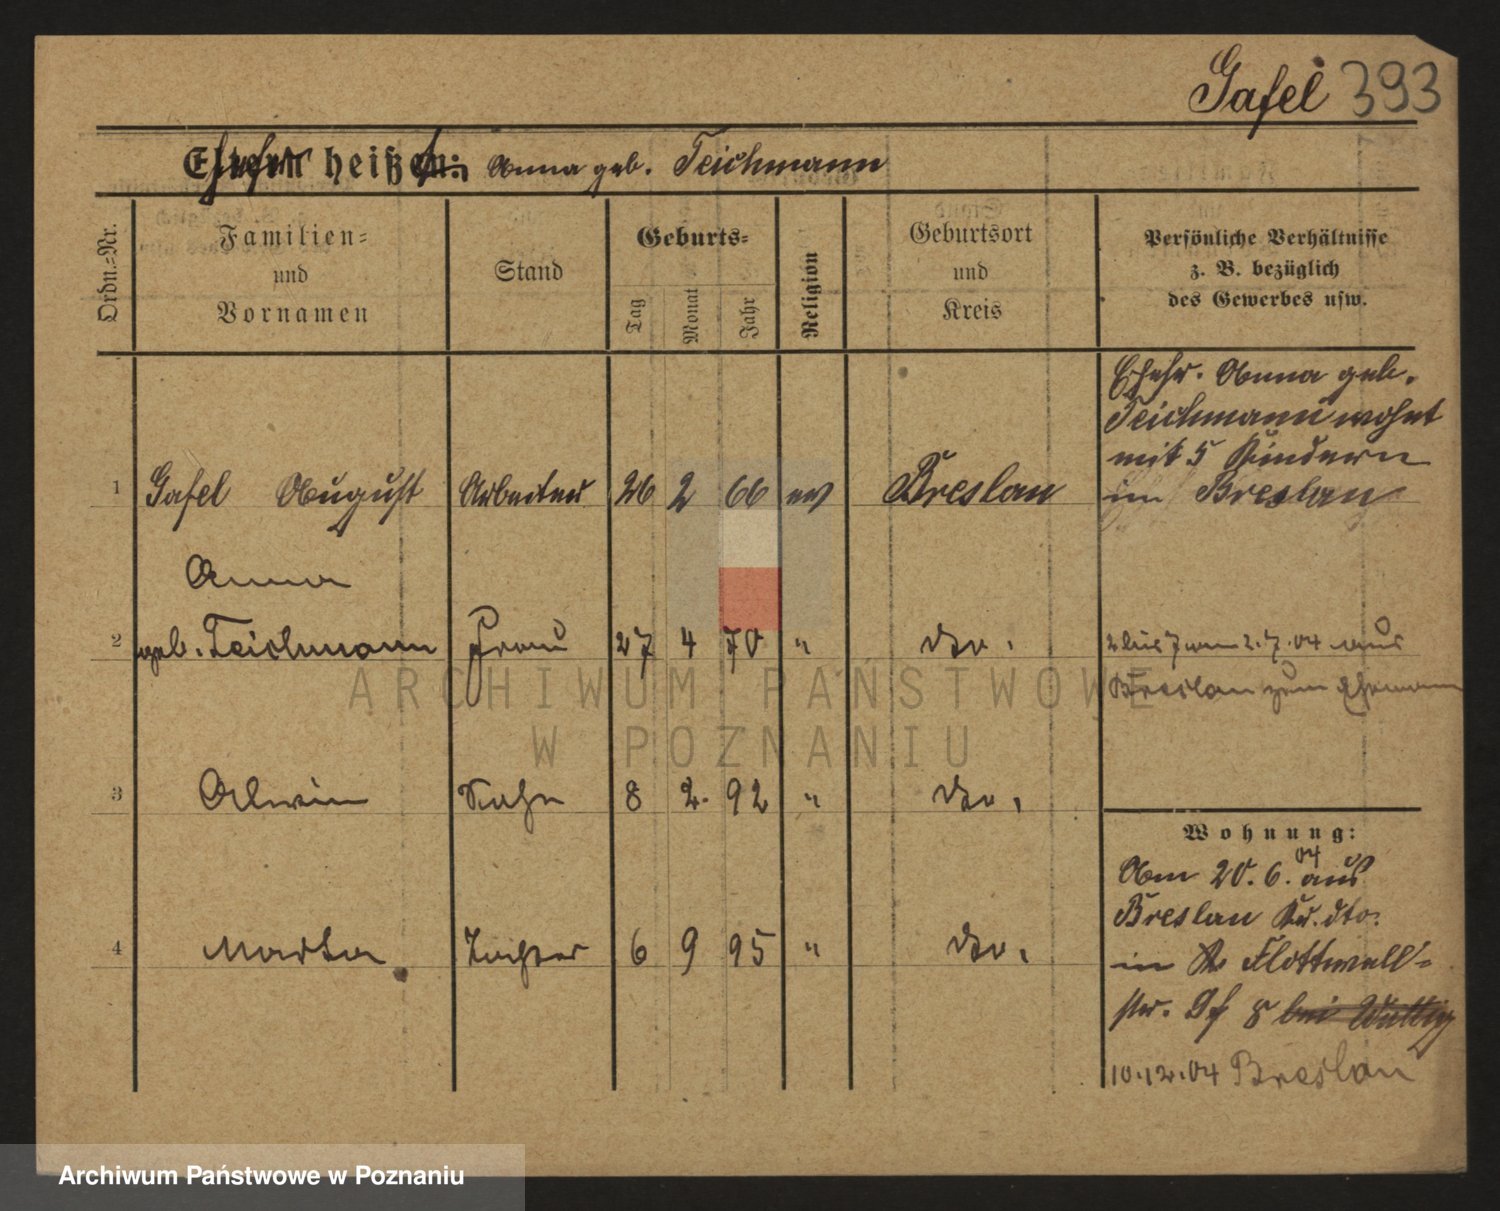 Gafel 393
Ehefr. heißt: Anna geb. Teichmann
Ordn.=Nr.
Familien=
und
Vornamen
Stand
Geburts=
Tag
Monat
Jahr
Religion
Geburtsort
und
Kreis
Persönliche Verhältnisse
z. B. bezüglich
des Gewerbes usw.
Ehefr. Anna geb.
Teichmann wohnt
mit 5 Kindern
in Breslau
1 Gafel August Arbeiter 26 2 66 ev Breslau
Anna
2 geb. Teichmann Frau 27 4 70 " dto.
2 bis 7 am 2.7.04 aus
Breslau zum Ehemann
3 Alwin Sohn 8 2. 92 " dto.
4 Martha Tochter 6 9 95 " dto.
Wohnung:
Am 20. 6. 04 aus
Breslau Kr. dto.
in Flottwell=
str. 8 bei Wuttig
10.12.04 Breslau
ARCHIWUM PAŃSTWOWE
W POZNANIU
Archiwum Państwowe w Poznaniu